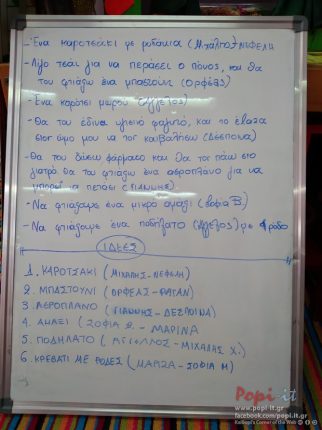 - Ένα καροτσάκι με ροδάκια (Μιχάλης+Νεφέλη
- Λίγο τσάι για να περάσει ο πόνος, και θα
του φτιάξω ένα μπαστούνι (Ορφέας)
- Ένα καρότσι μωρού (Άγγελος)
- Θα του έδινα υγιεινό φαγητό, και το έβαζα
στον ώμο μου να τον κουβαλήσω (Δέσποινα)
- Θα του δώσω φάρμακο και θα τον πάω στο
γιατρό θα του φτιάξω ένα αεροπλάνο για να
μπορεί να πετάει (Γιάννης)
- Να φτιάξουμε ένα μικρό αμάξι (Σοφία Β)
- Να φτιάξουμε ένα ποδήλατο (Άγγελος) με 4 ρόδες
ΙΔΕΕΣ
1. ΚΑΡΟΤΣΑΚΙ (ΜΙΧΑΛΗΣ-ΝΕΦΕΛΗ)
2. ΜΠΑΣΤΟΥΝΙ (ΟΡΦΕΑΣ-
3. ΑΕΡΟΠΛΑΝΟ (ΓΙΑΝΝΗΣ-ΔΕΣΠΟΙΝΑ)
4. ΑΜΑΞΙ (ΣΟΦΙΑ Β.- ΜΑΡΙΝΑ
5. ΠΟΔΗΛΑΤΟ (ΜΙΧΑΛΗΣ Χ.)
6. ΚΡΕΒΑΤΙ ΜΕ ΡΟΔΕΣ (ΣΟΦΙΑ Μ)
Popi-it
www.popi-it.gr
facebook.com/popi.it.gr
Kalliopi's Corner of the Web